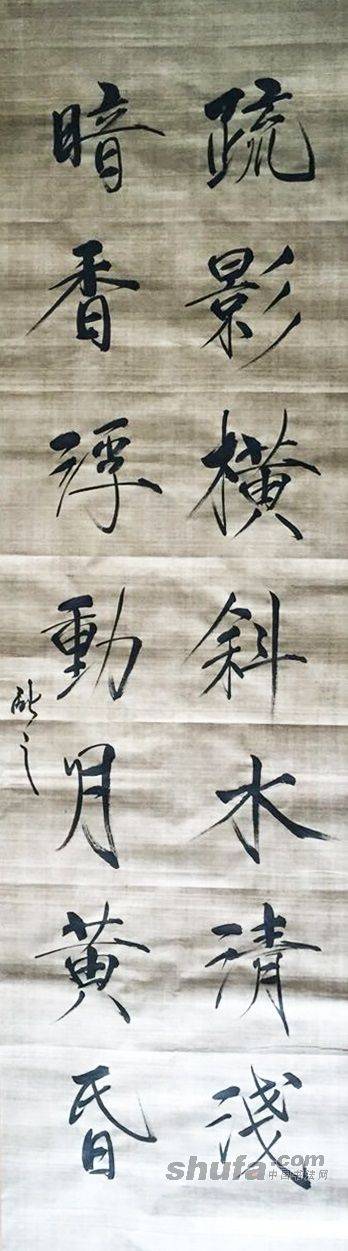 疏影橫斜水清淺
暗香浮動月黃昏
shufa.com
中国书法网